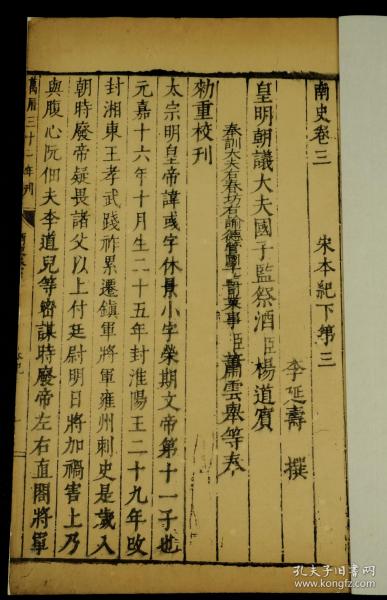 南史卷三
宋本紀下第三
李延壽 撰
皇明朝議大夫國子監祭酒臣楊道賓
奉訓大夫右春坊右諭德管國子監司業事臣蕭雲舉等奉
勑重校刊
太宗明皇帝諱彧字休景小字榮期文帝第十一子也
元嘉十六年十月生二十五年封淮陽王二十九年改
封湘東王孝武踐祚累遷鎮軍將軍雍州刺史是歲入
朝時廢帝疑畏諸父以上付廷尉明日將加禍害上乃
與腹心阮佃夫李道兒等密謀時廢帝左右直閤將軍
萬曆三十一年刊
孔夫子旧书网